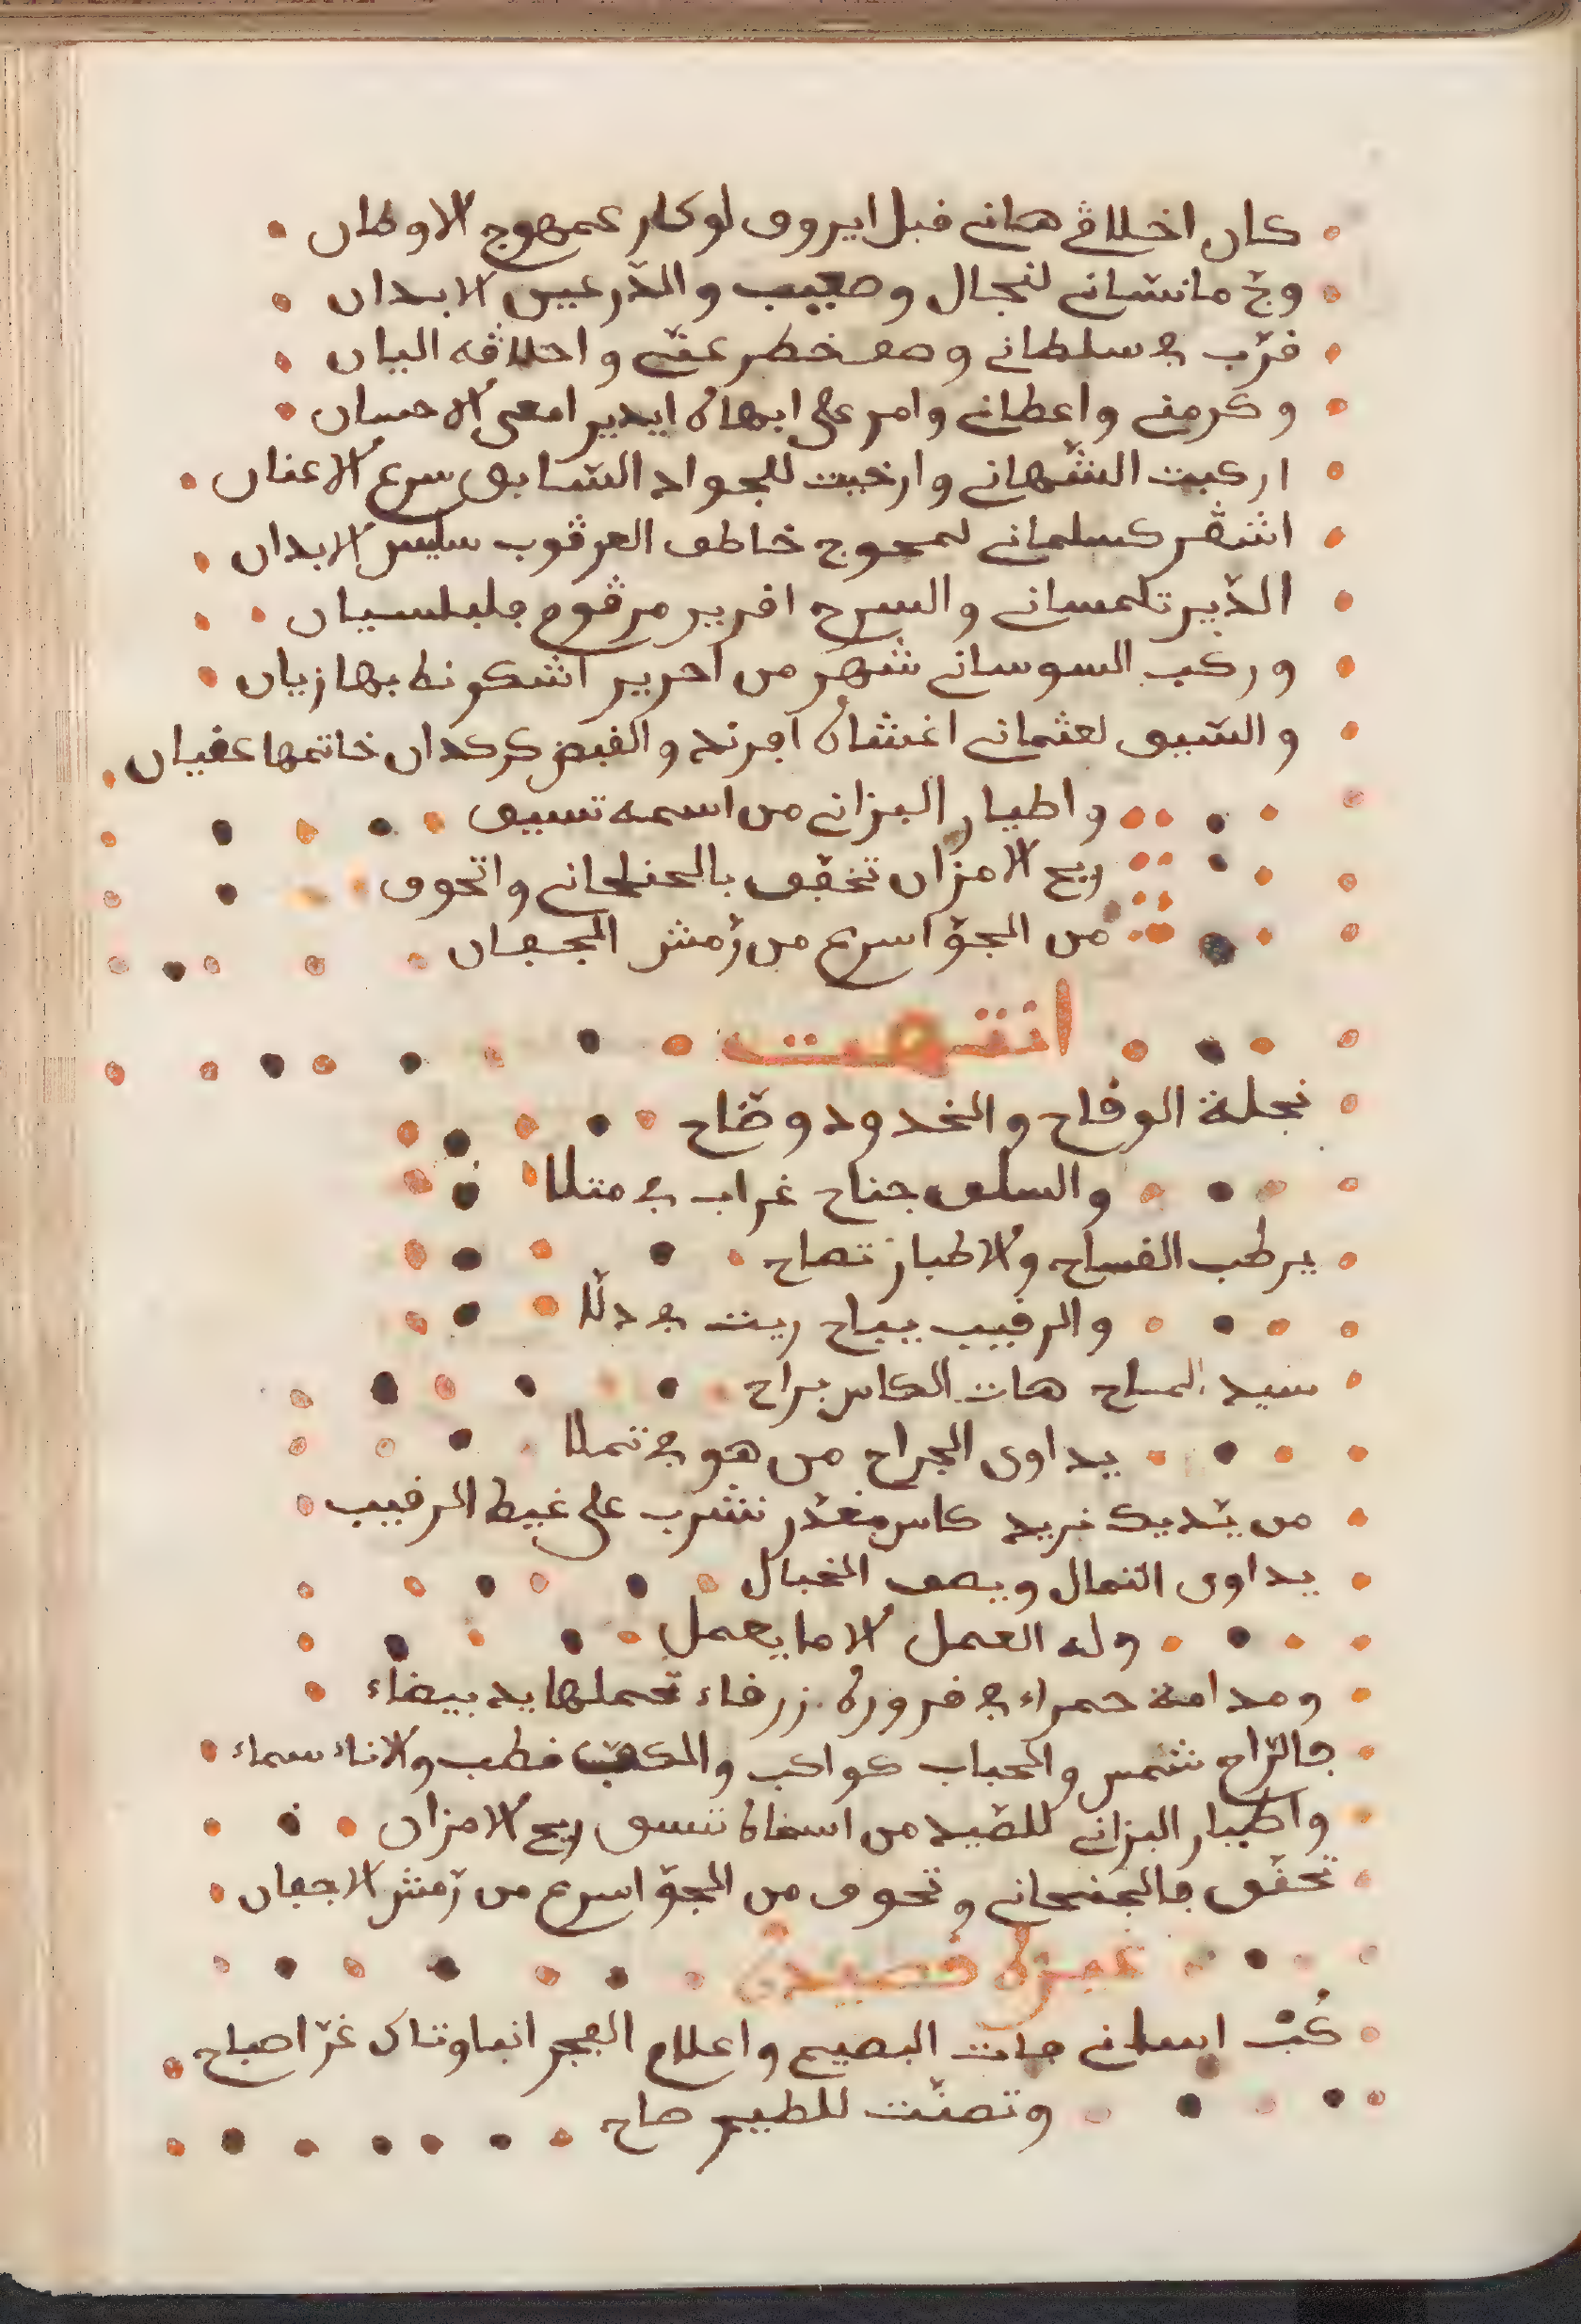 كان اخلاڨي هاني قبل ايروف لوكار عمهوج الاوطان
وڃ مانساني لنجال وصبيب والدرعين الابدان
قرّب في سلطاني وصف خطر عفّي واخلاڨه اليان
وكرمني واعطاني وامر على ابهاه ايدير امعى الاحسان
اركبت الشهاني وارخيت للجواد السابق سرع الاعنان
اشڨر كسلماني لمحوج خاطف العرڨوب سليس الابدان
الدّير تلمساني والسرج افرير مرڨوم بلبلسيان
وركب السوساني شهر من احرير اشكونط بها زيان
والسيف لعثماني اغشاه افرند والقبض كركدان خاتمها عقيان
واطيار البزاني من اسمه تسيف
ريح الامزان تخفّق بالجنحاني واتحوف
من الجوّ اسرع من رّمش الجفان
انتهت
نجلة الوقاح والخدود وضّاح
والسلف جناح غراب في متلا
يرطب الفساح والاطيار تصاح
والرقيب يباح ريت في دلّا
سيد الملاح هات الكاس براح
يداوى الجراح من هو في تملا
من يّديك نريد كاس مغدّر نشرب على غيظ الرقيب
يداوى الثمال ويصف الخبال
وله العمل الا ما يعمل
ومدامة حمراء في قرورة زرقاء تحملها يد بيضاء
فالرّاح شمس والحباب كواكب والكف قطب والاناء سماء
واطيار البزاني للصّيد من اسماه تنسف ريح الامزان
تخفّق فالجنحاني وتحوف من الجوّ اسرع من رّمش الاجفان
غيره قصيدة
كُبّ اسلاني جات البصيح واعلام الفجر انباوتاك غرّ اصباح
وتصنّت للطيير صاح